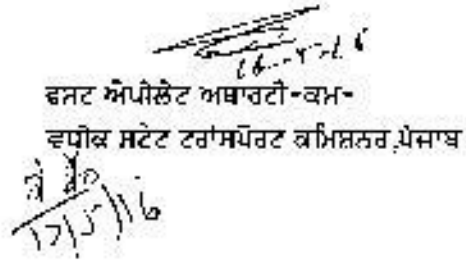 16-5-16
ਫਸਟ ਐਪੀਲੇਟ ਅਥਾਰਟੀ-ਕਮ-
ਵਧੀਕ ਸਟੇਟ ਟਰਾਂਸਪੋਰਟ ਕਮਿਸ਼ਨਰ,ਪੰਜਾਬ
17/5/16